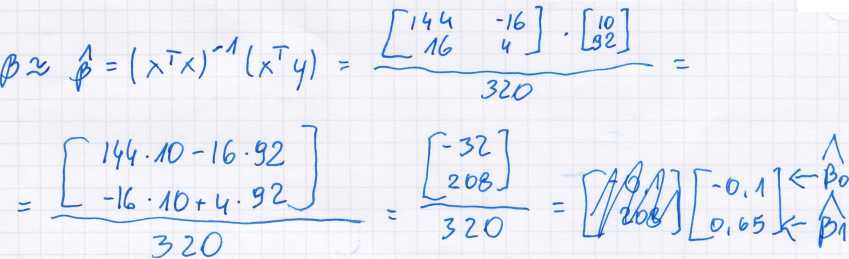 β ≈ β̂ = (xᵀx)⁻¹ (xᵀy) = [144 -16; 16 4] · [10; 92] / 320 =
= [144·10 - 16·92; -16·10 + 4·92] / 320 = [-32; 208] / 320 = [-0,1; 0,65] ← β̂0 ← β̂1